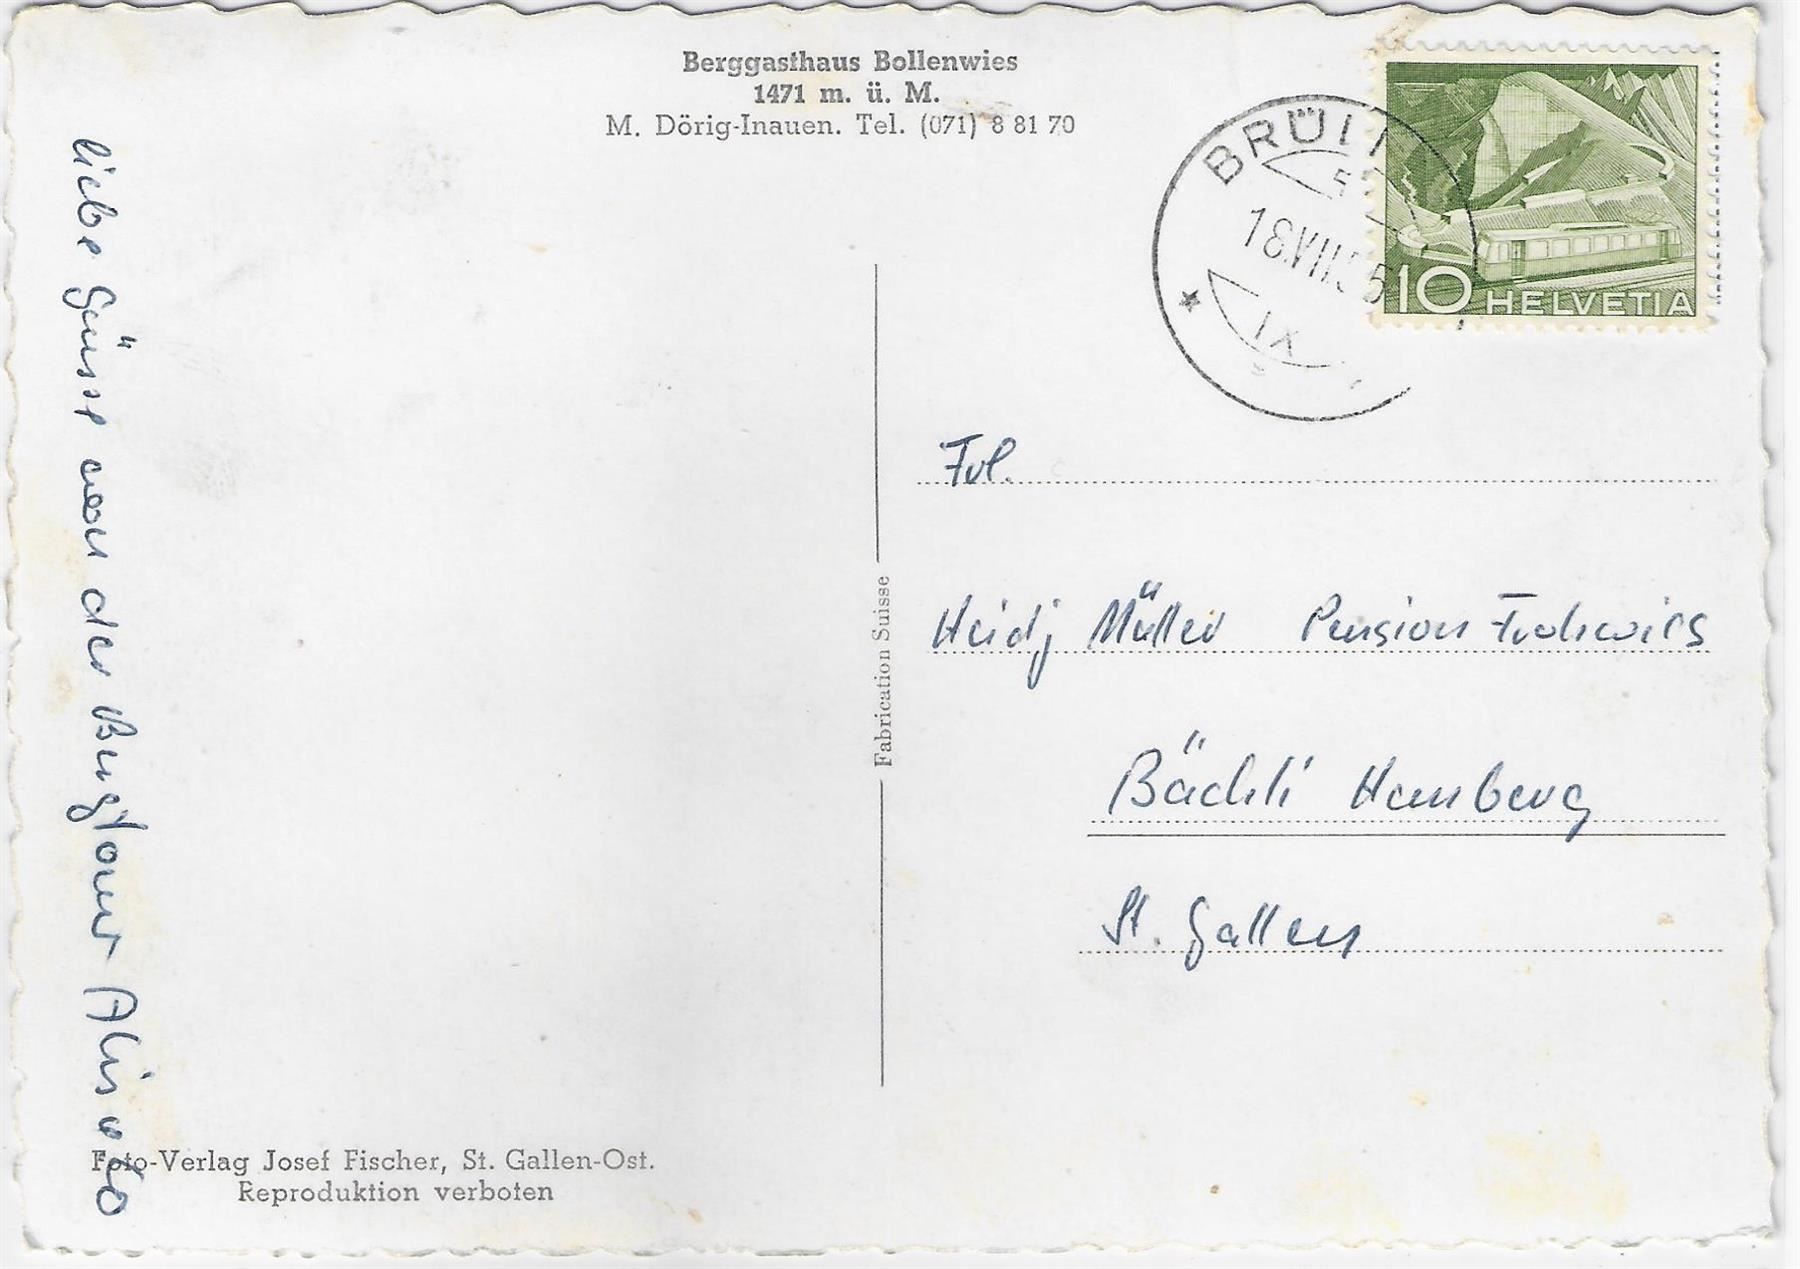 Berggasthaus Bollenwies
1471 m. ü. M.
M. Dörig-Inauen. Tel. (071) 8 81 70
BRÜLI
18.VIII.5
IX
10 HELVETIA
liebe Grüsse von der Bergtour
Fabrication Suisse
Frl.
Heidj Müller Pension Frohwies
Bächli Hemberg
St. Gallen
Foto-Verlag Josef Fischer, St. Gallen-Ost.
Reproduktion verboten